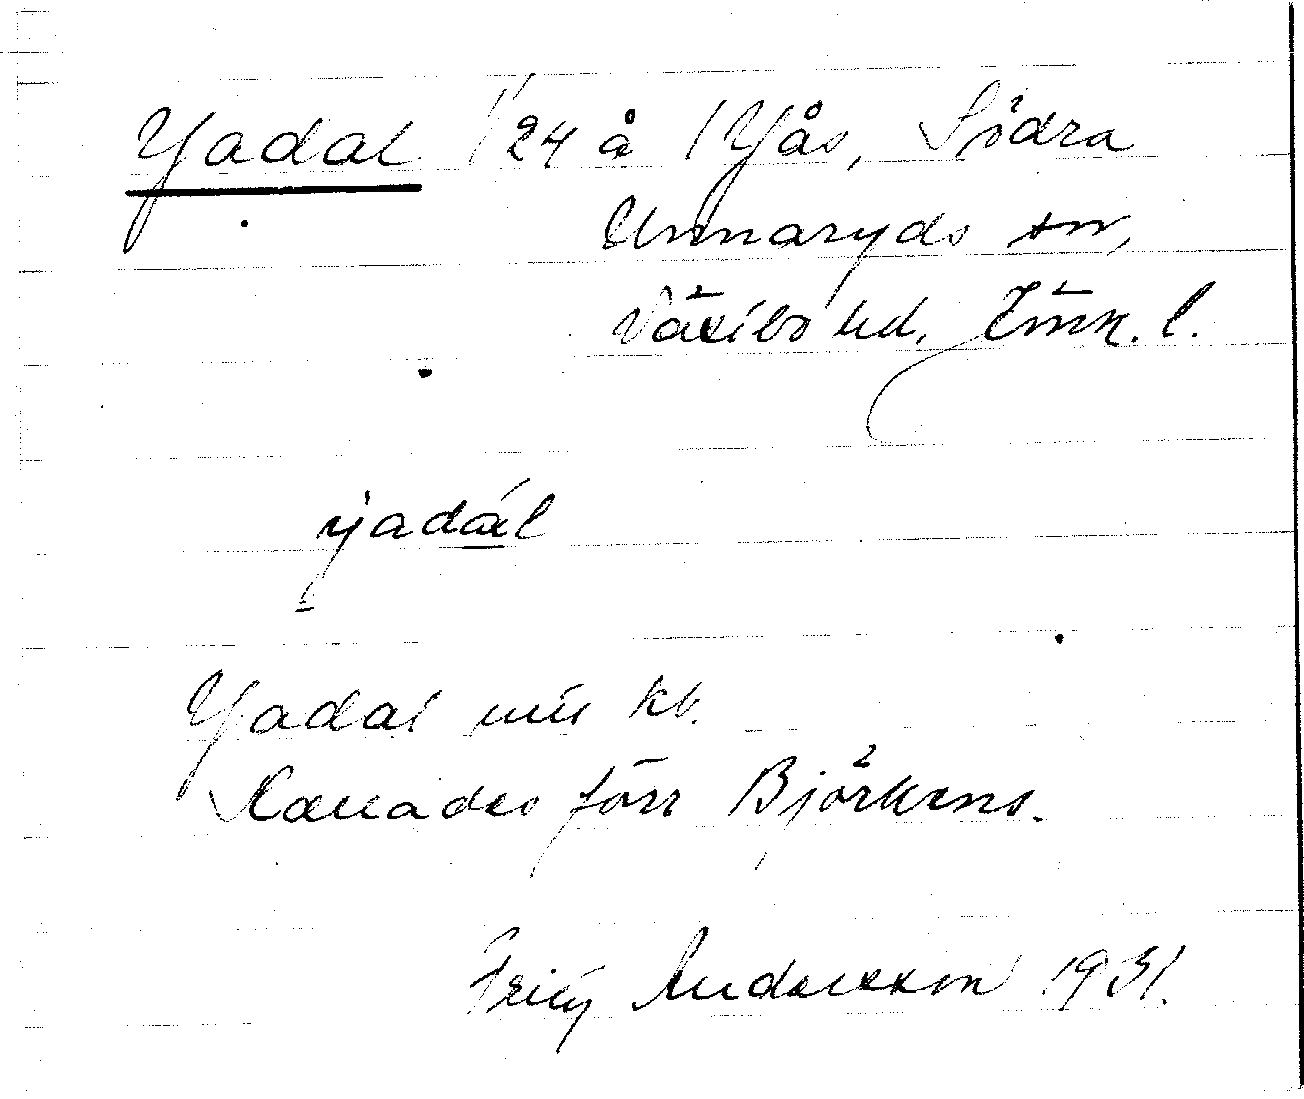 Yadal 1/24 å 1 Yås, Södra
Unnaryds sn,
Västbo hd, Jönk. l.
yadál
Yadal uu kb.
Kallades förr Björkens.
Fritz Andersson 1931.